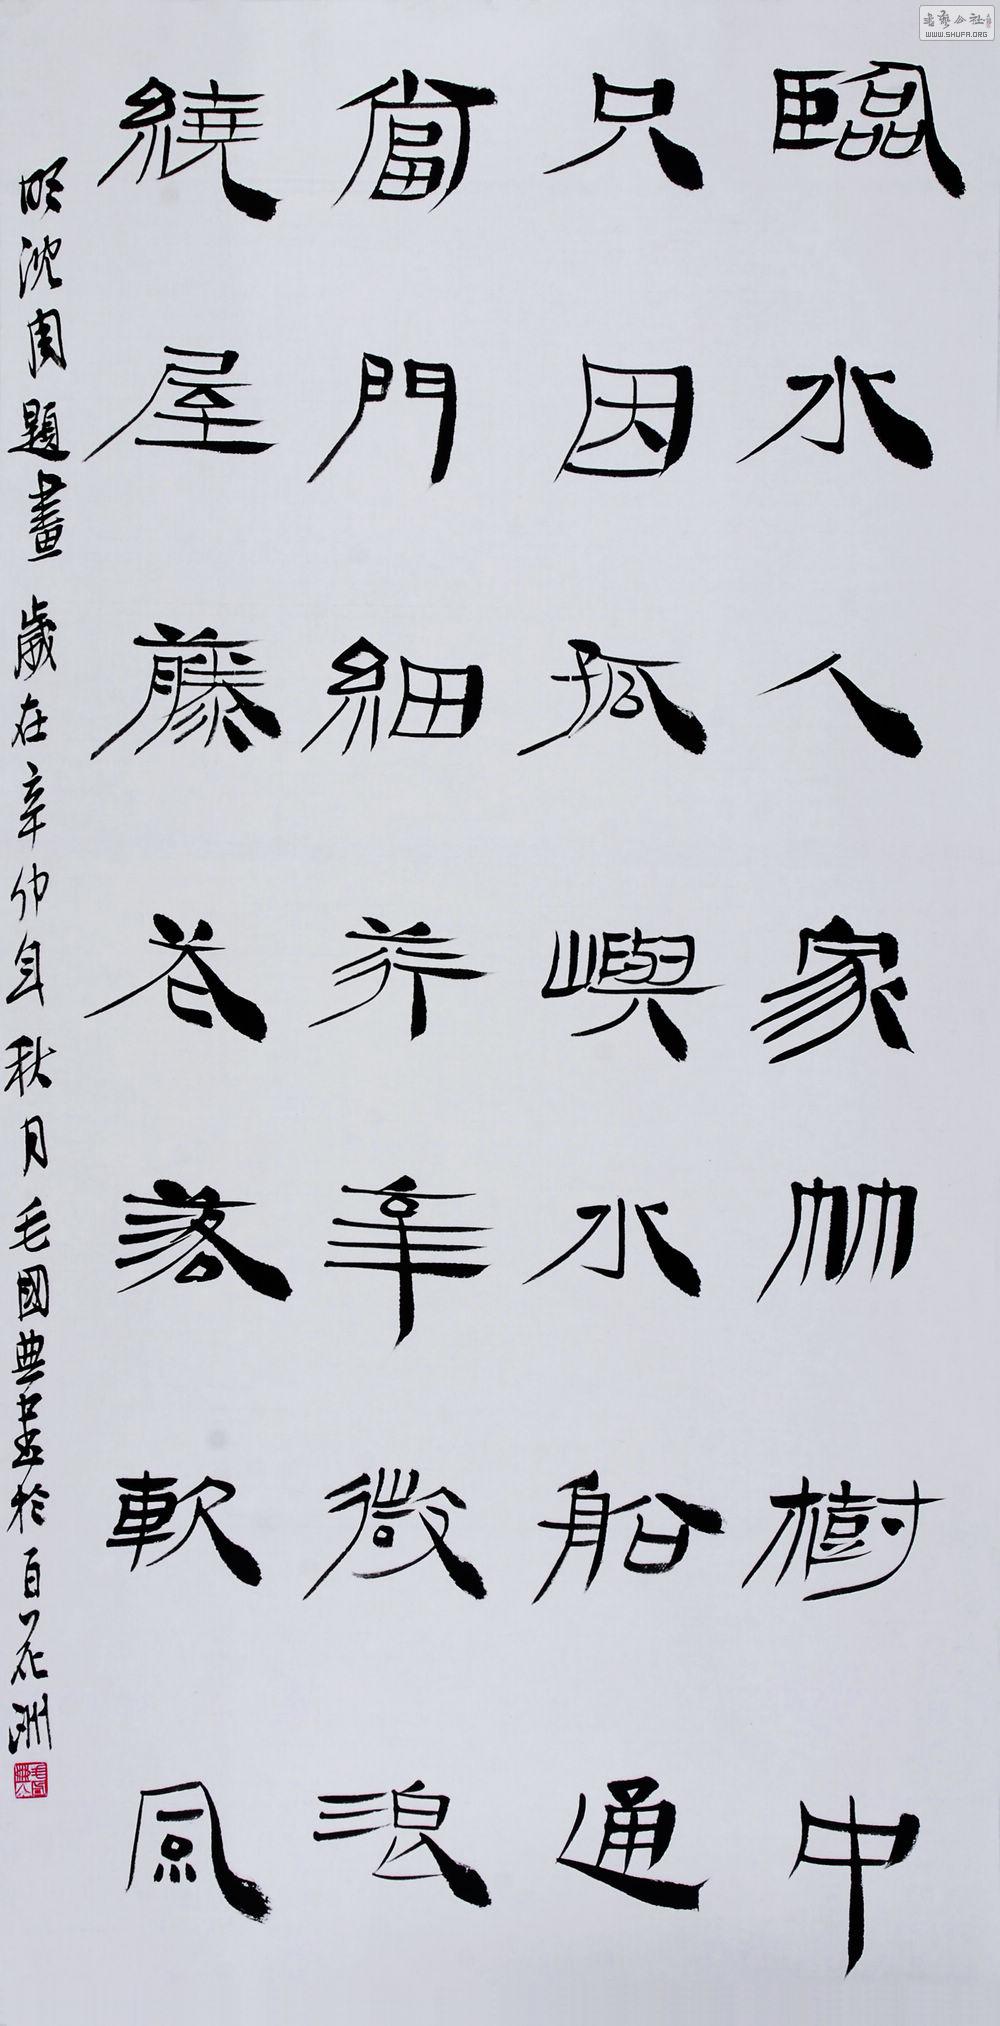 臨水人家竹樹中
只因孤嶼水船通
當門細荇牽微浪
繞屋藤谷落軟風
明沈周題畫 歲在辛卯年秋月毛國典書於百花洲
书艺公社
WWW.SHUFA.ORG